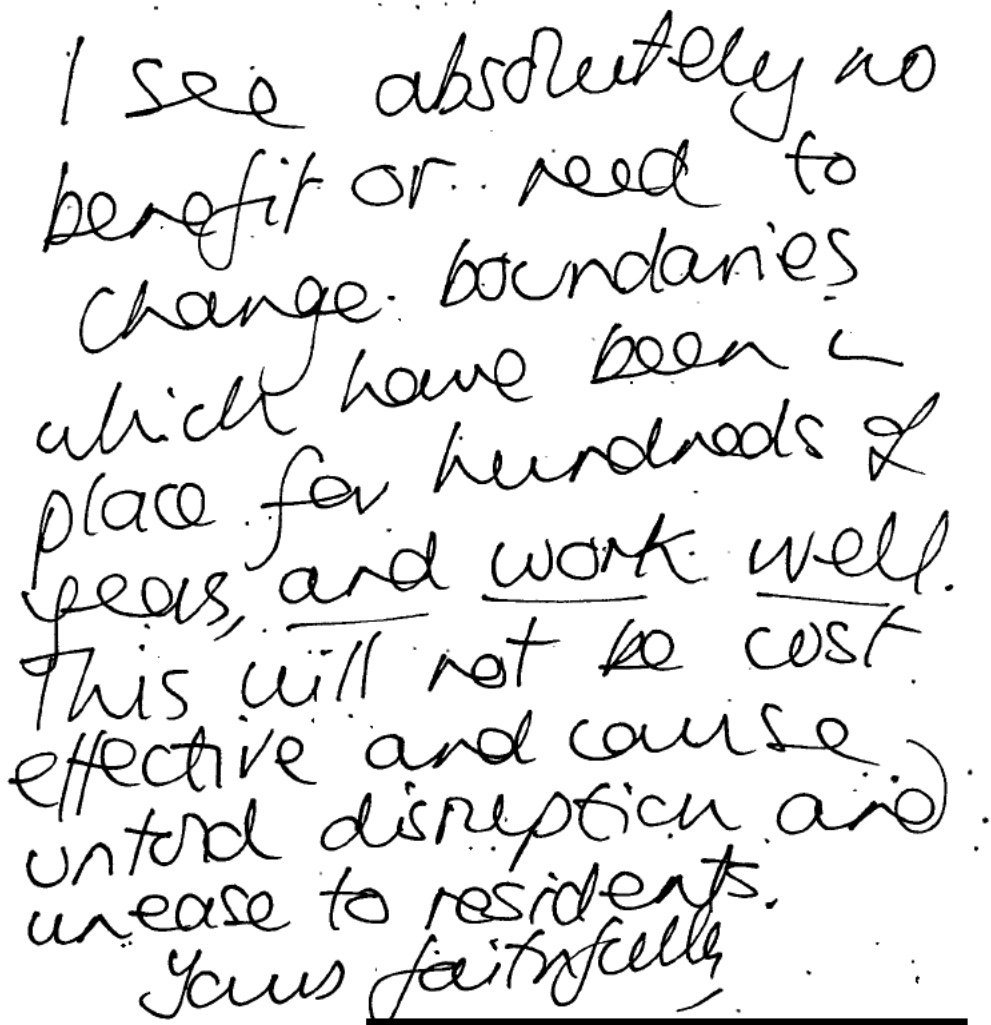 I see absolutely no
benefit or need to
change boundaries
which have been in
place for hundreds of
years, and work well.
This will not be cost
effective and cause
untold disruption and
unease to residents.
Yours faithfully,